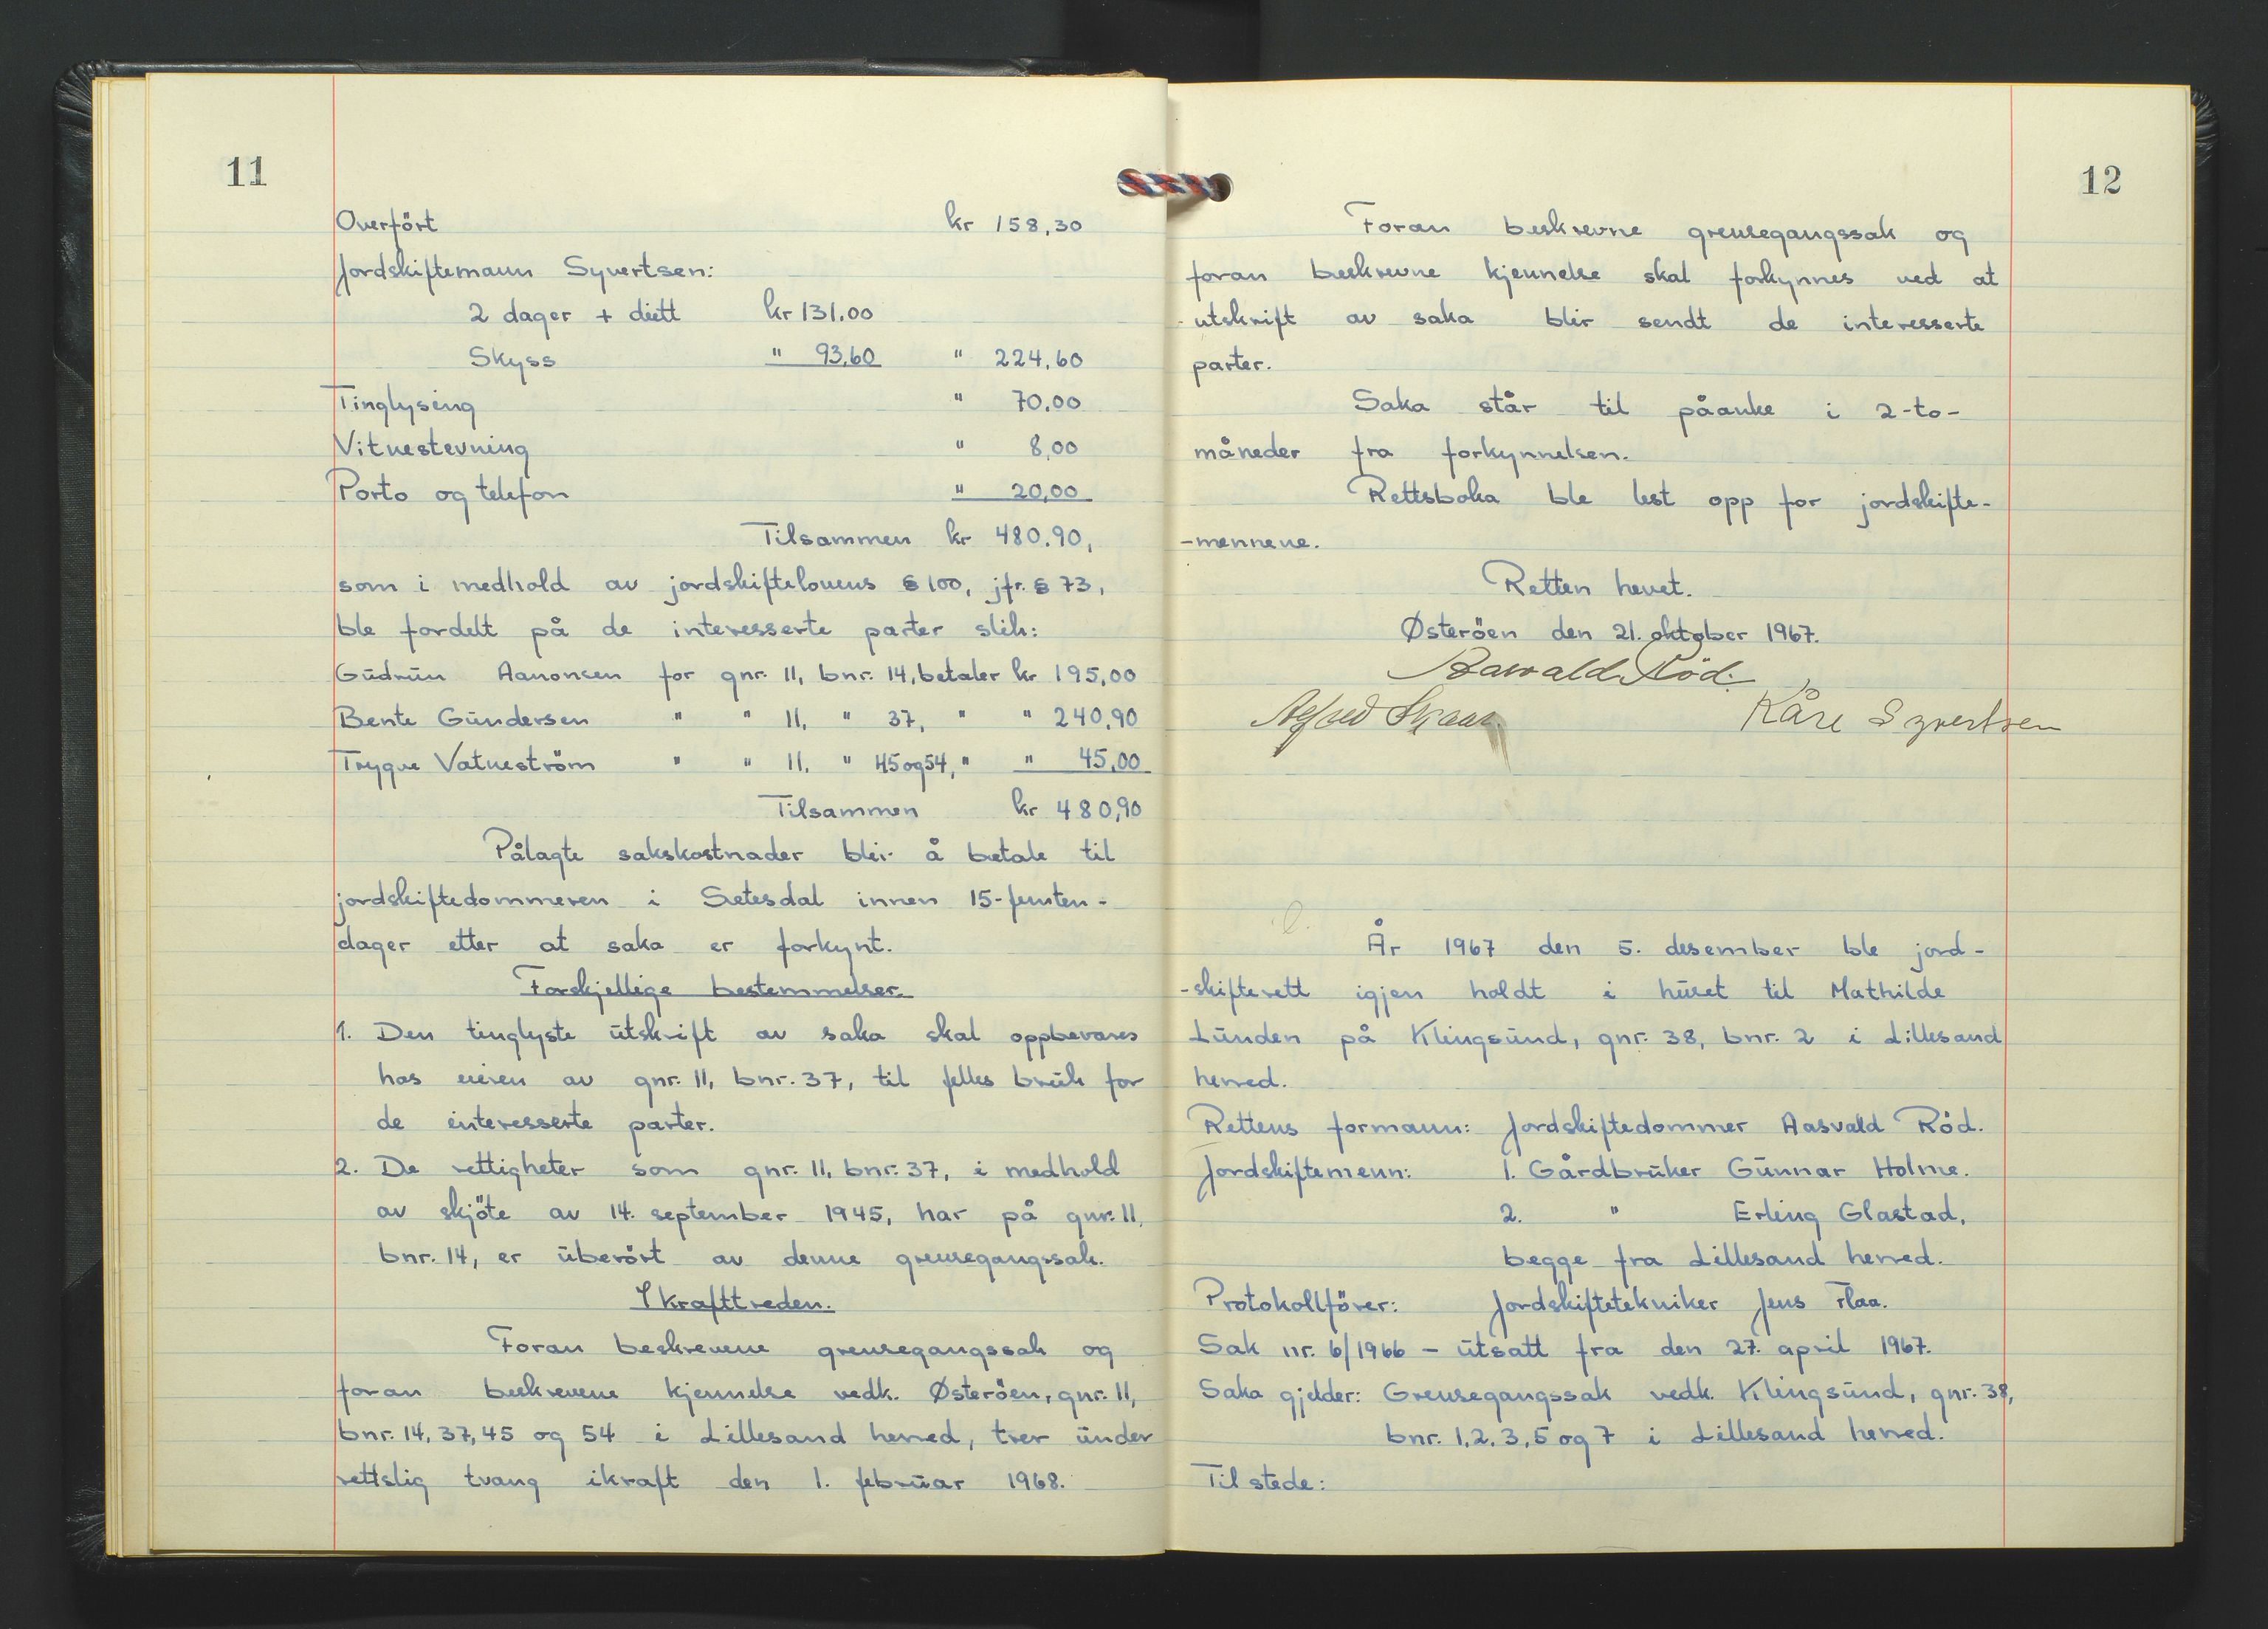 11
Overfört kr 158,30
Jordskiftemann Syvertsen:
2 dager + diett kr 131.00
Skyss " 93,60 " 224,60
Tinglysing " 70,00
Vitnestevning " 8,00
Porto og telefon " 20,00
Tilsammen kr 480.90,
som i medhold av jordskiftelovens § 100, jfr. § 73,
ble fordelt på de interesserte parter slik:
Gudrun Aanonsen for gnr. 11, bnr. 14, betaler kr 195,00
Bente Gundersen " " 11, " 37, " " 240,90
Trygve Vatneström " " 11, " 45 og 54, " " 45,00
Tilsammen kr 480,90
Pålagte sakskostnader blir å betale til
jordskiftedommeren i Setesdal innen 15-femten-
dager etter at saka er forkynt.
Forskjellige bestemmelser.
1. Den tinglyste utskrift av saka skal oppbevares
hos eieren av gnr. 11, bnr. 37, til felles bruk for
de interesserte parter.
2. De rettigheter som gnr. 11, bnr. 37, i medhold
av skjöte av 14. september 1945, har på gnr. 11,
bnr. 14, er uberört av denne grensegangssak.
Ikrafttreden.
Foran beskrevene grensegangssak og
foran beskrevene kjennelse vedk. Østeröen, gnr. 11,
bnr. 14, 37, 45 og 54 i Lillesand herred, trer under
rettslig tvang ikraft den 1. februar 1968.
12
Foran beskrevne grensegangssak og
foran beskrevne kjennelse skal forkynnes ved at
utskrift av saka blir sendt de interesserte
parter.
Saka står til påanke i 2-to-
måneder fra forkynnelsen.
Rettsboka ble lest opp for jordskifte-
-mennene.
Retten hevet.
Østeröen den 21. oktober 1967.
Aasvald Röd.
Alfred Skaar. Kåre Syvertsen
År 1967 den 5. desember ble jord-
-skifterett igjen holdt i huset til Mathilde
Lunden på Klingsund, gnr. 38, bnr. 2 i Lillesand
herred.
Rettens formann: Jordskiftedommer Aasvald Röd.
Jordskiftemenn: 1. Gårdbruker Gunnar Holme.
2. " Erling Glastad,
begge fra Lillesand herred.
Protokollförer: Jordskiftetekniker Jens Flaa.
Sak nr. 6/1966 – utsatt fra den 27. april 1967.
Saka gjelder: Grensegangssak vedk. Klingsund, gnr. 38,
bnr. 1, 2, 3, 5 og 7 i Lillesand herred.
Til stede: